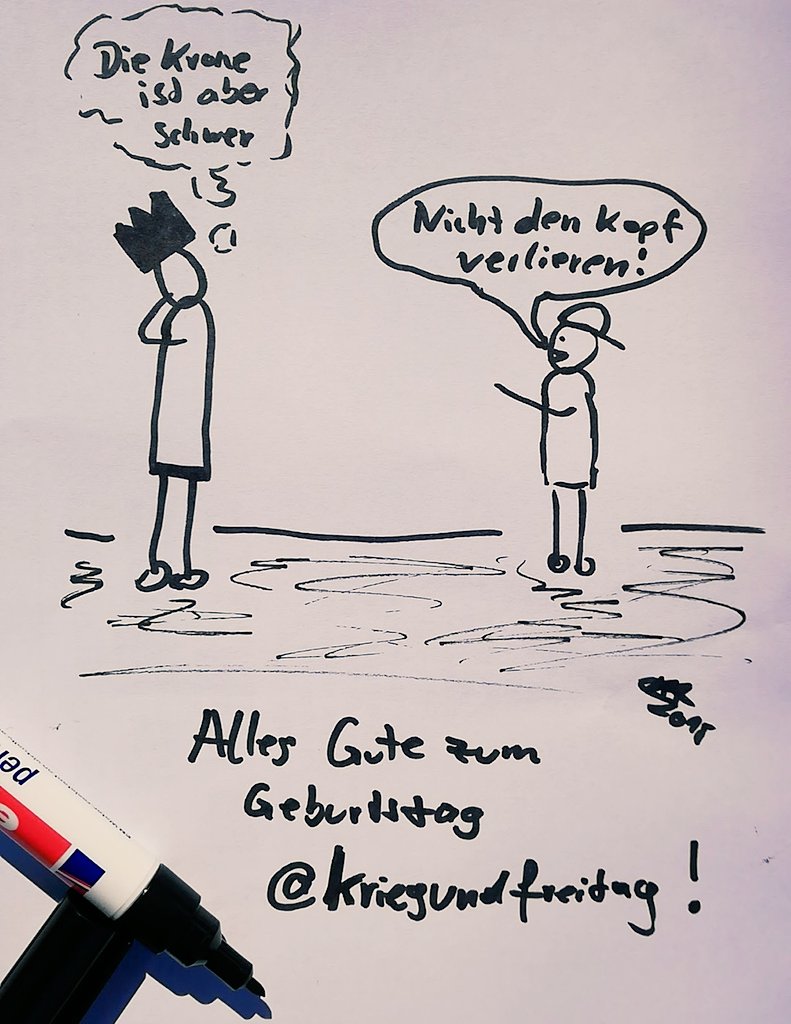 Die Krone
ist aber
schwer
Nicht den Kopf
verlieren!
2018
Alles Gute zum
Geburtstag
@kriegundfreitag!